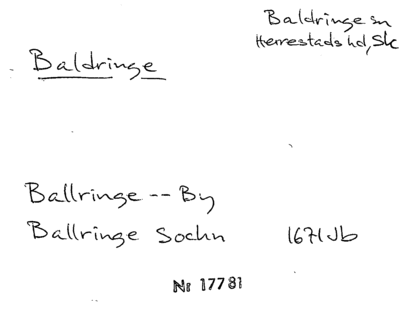 Baldringe sn
Herrestads hd, Sk
Baldringe
Ballringe -- By
Ballringe Sochn 1671 Jb
Nr 17781